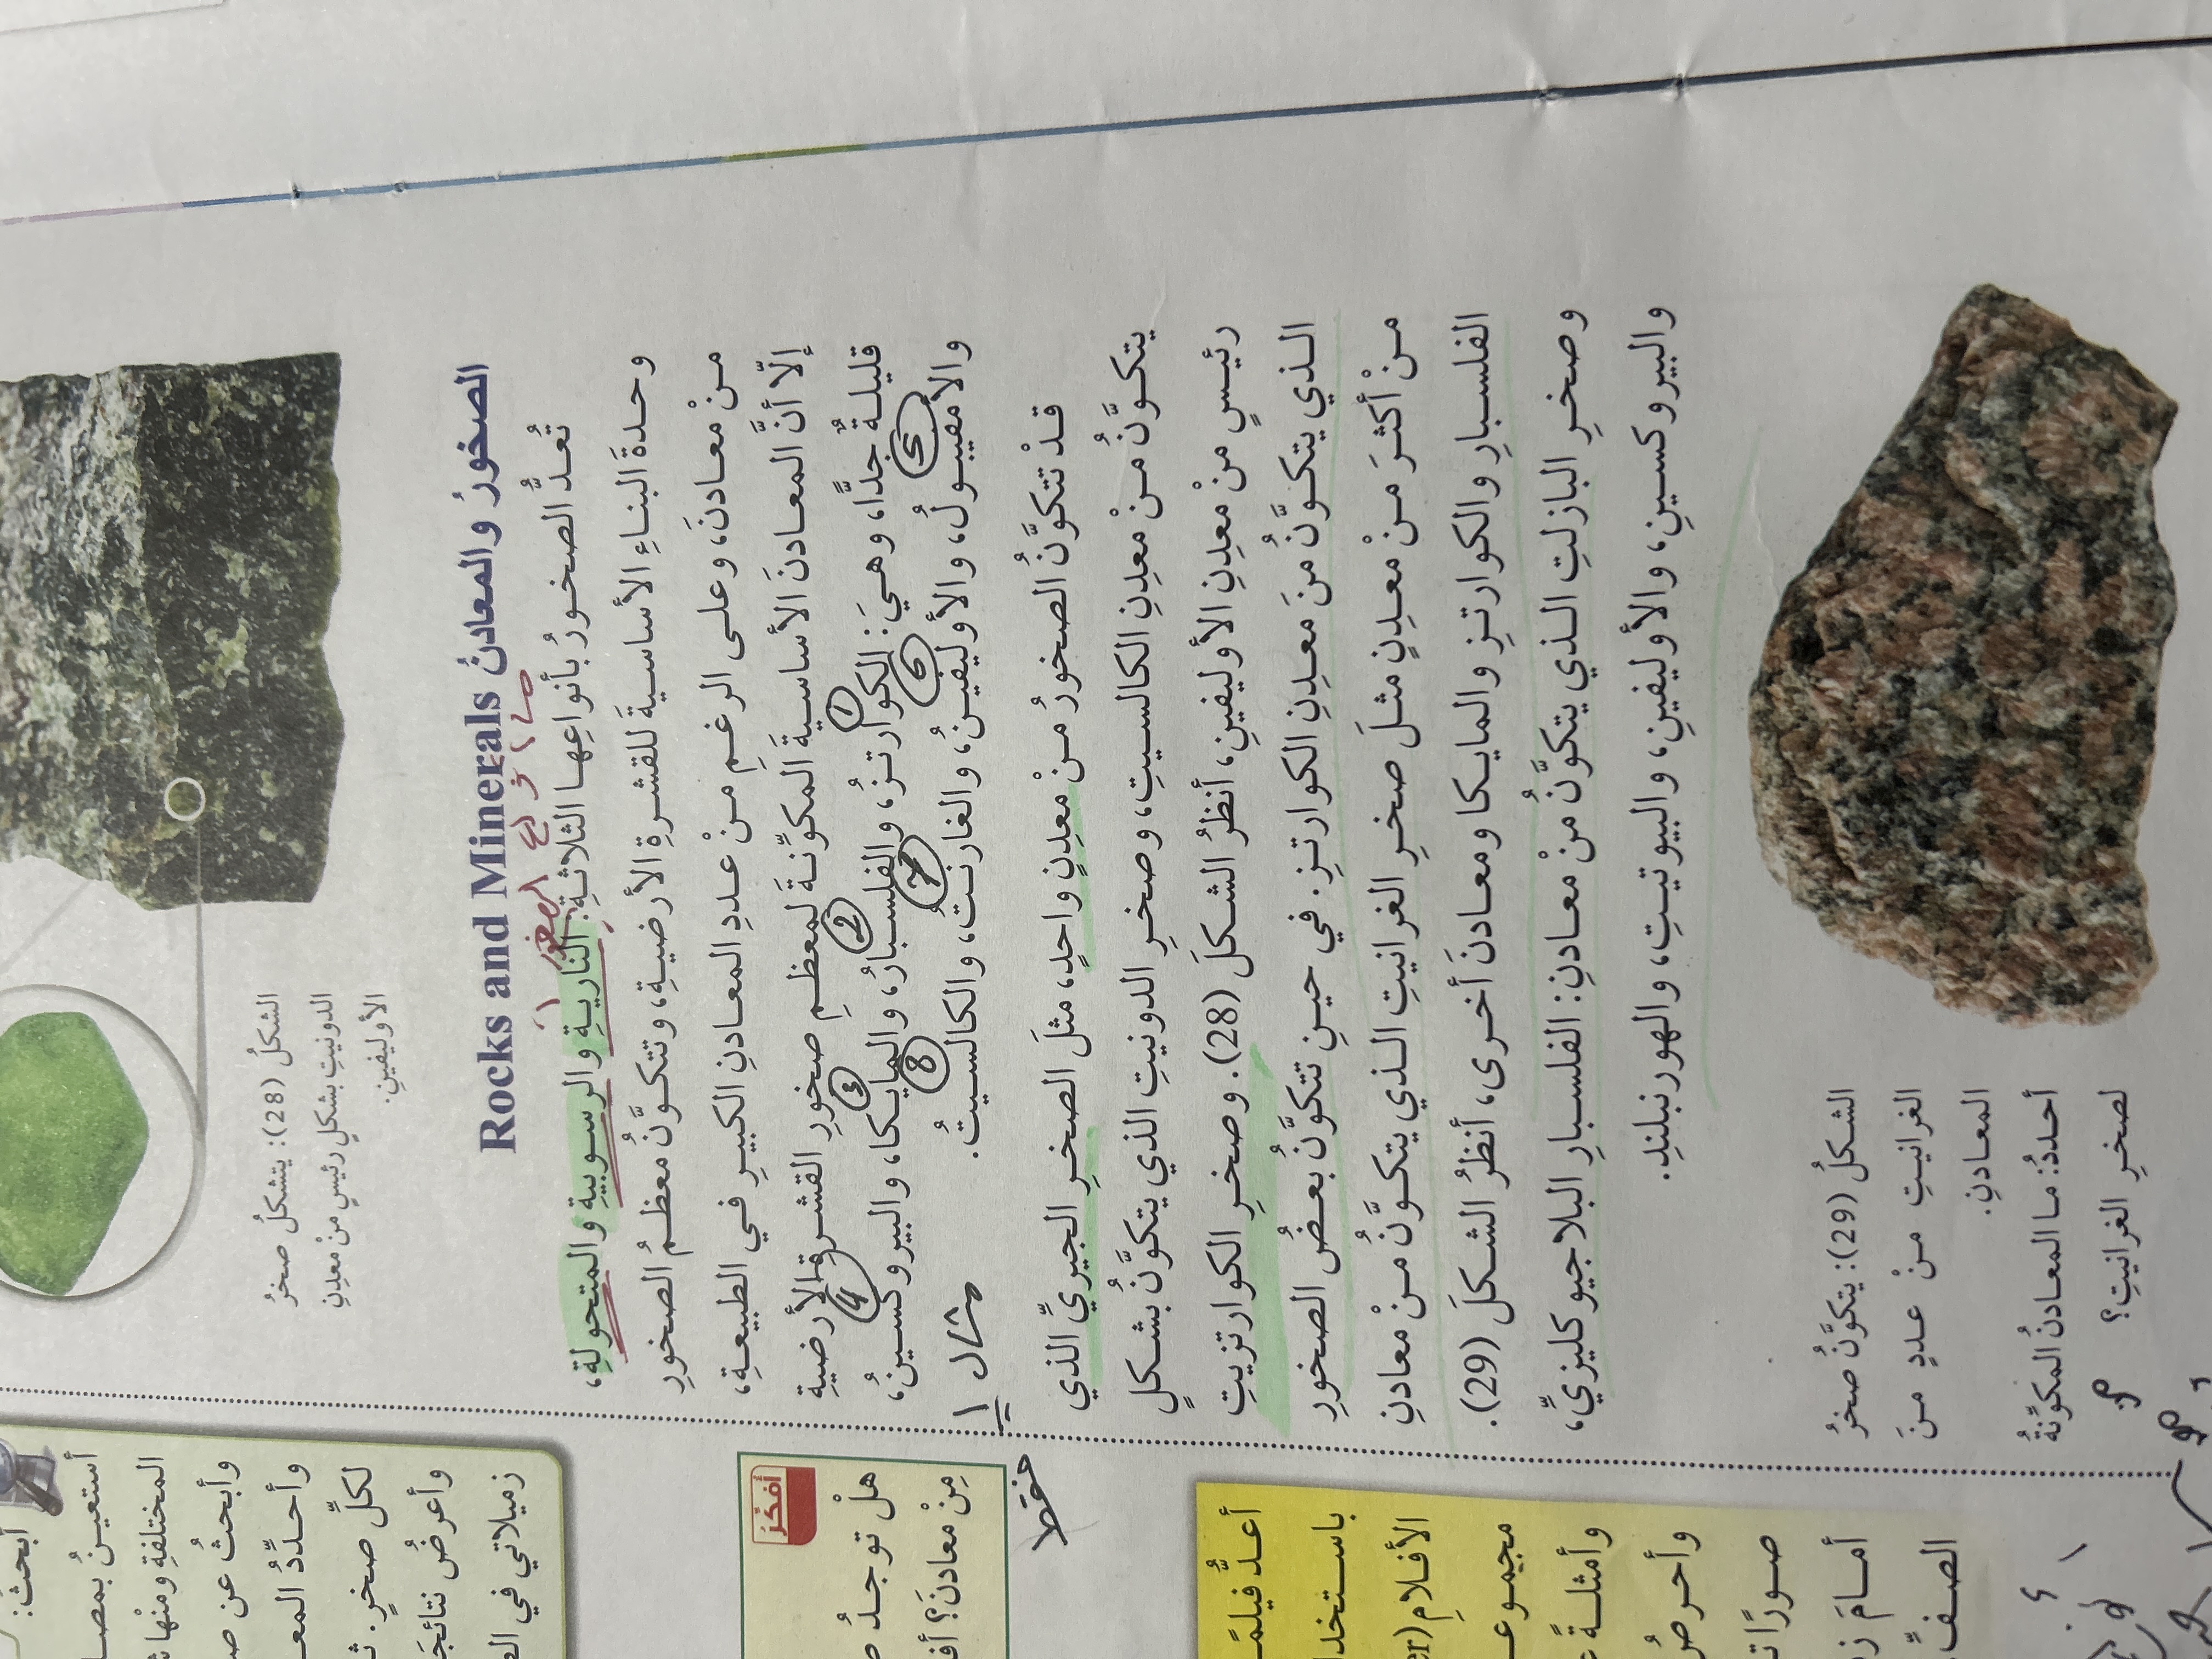 الشكلُ (28): يتشكلُ صخرُ
الدونيتِ بشكلٍ رئيسٍ منْ معدِنِ
الأوليفينِ.
الصخورُ والمعادنُ Rocks and Minerals
أنواع الصخور
تُعدُّ الصخورُ بأنواعِها الثلاثةِ: الناريةِ والرسوبيةِ والمتحولةِ،
وحدةَ البناءِ الأساسيةَ للقشرةِ الأرضيةِ، وتتكوَّنُ معظمُ الصخورِ
منْ معادنَ، وعلى الرغمِ منْ عددِ المعادنِ الكبيرِ في الطبيعةِ،
إلّا أنَّ المعادنَ الأساسيةَ المكوِّنةَ لمعظمِ صخورِ القشرةِ الأرضيةِ
قليلةٌ جدًّا، وهيَ: الكوارتزُ، والفلسبارُ، والمايكا، والبيروكسينُ،
1 2 3 4
والأمفيبولُ، والأوليفينُ، والغارنتُ، والكالسيتُ.
5 6 7 8
مثال
فقط
قدْ تتكوَّنُ الصخورُ منْ معدِنٍ واحدٍ، مثلَ الصخرِ الجيريِّ الذي
يتكوَّنُ منْ معدِنِ الكالسيتِ، وصخرِ الدونيتِ الذي يتكوَّنُ بشكلٍ
رئيسٍ منْ معدِنِ الأوليفينِ، أنظرُ الشكلَ (28). وصخرِ الكوارتزيتِ
الذي يتكوَّنُ منَ معدِنِ الكوارتزِ. في حينِ تتكوَّنُ بعضُ الصخورِ
منْ أكثرَ منْ معدِنٍ مثلَ صخرِ الغرانيتِ الذي يتكوَّنُ منْ معادنِ
الفلسبارِ والكوارتزِ والمايكا ومعادنَ أخرى، أنظرُ الشكلَ (29).
وصخرِ البازلتِ الذي يتكوَّنُ منْ معادنِ: الفلسبارِ البلاجيوكليزيِّ،
والبيروكسينِ، والأوليفينِ، والبيوتيتِ، والهورنبلندِ.
الشكلُ (29): يتكوَّنُ صخرُ
الغرانيتِ منْ عددٍ منَ
المعادنِ.
أحددُ: ما المعادنُ المكوِّنةُ
لصخرِ الغرانيتِ؟
أبحثُ:
أستعينُ بمصا
المختلفةِ ومنها
وأبحثُ عن
وأحدِّدُ المعـ
لكلِّ صخرٍ.
وأعرضُ نتائجَ
زميلاتي في
أفكّر
هلْ توجدُ
مِنْ معادنَ؟
أعدُّ فيلمً
باستخدا
الأفلامِ
مجموعـ
وأمثلةً
وأحرصُ
صورًا
أمامَ
الصفِّ